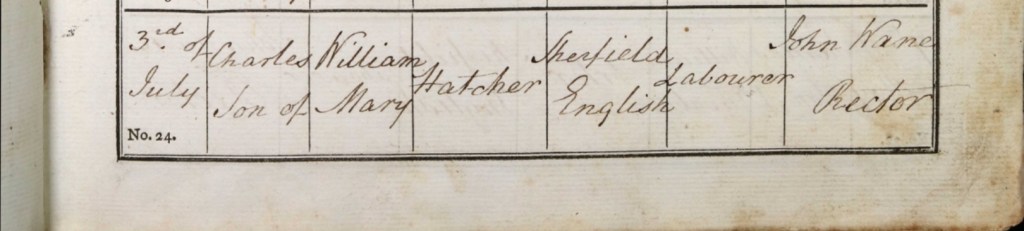 3rd of
July
No. 24.
Charles
Son of
William
Mary
Hatcher
Sherfield
English
Labourer
John Wane
Rector